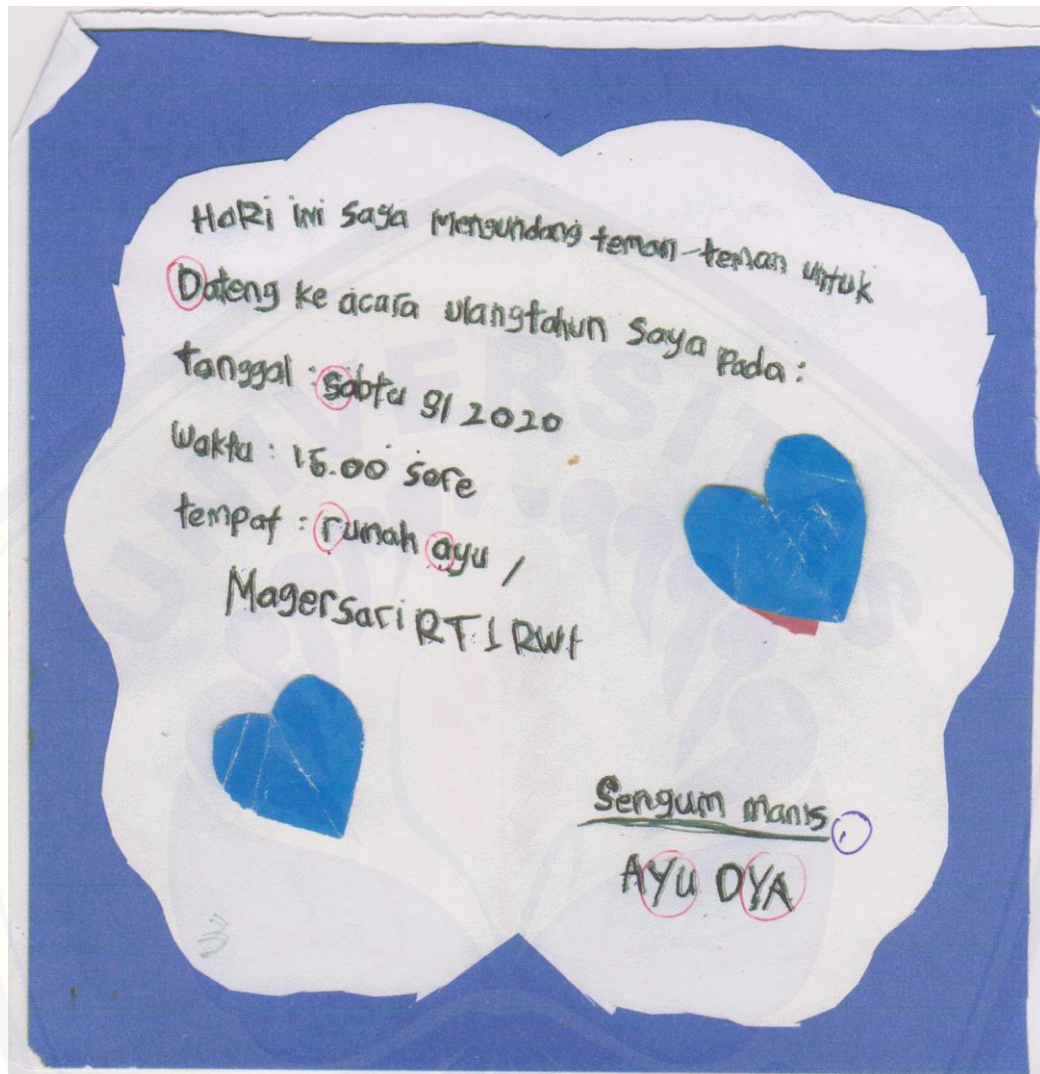 HaRi ini saya Mengundang teman-teman untuk
Dateng ke acara ulangtahun saya Pada:
tanggal : sabtu 9/ 2020
Waktu : 15.00 sore
tempat : rumah ayu /
Magersari RT 1 RW1
Sengum manis,
AYU DYA
UNIVERSITAS